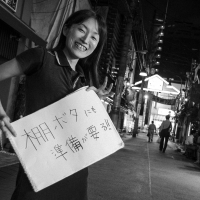 棚ボタにも
準備が要る!!